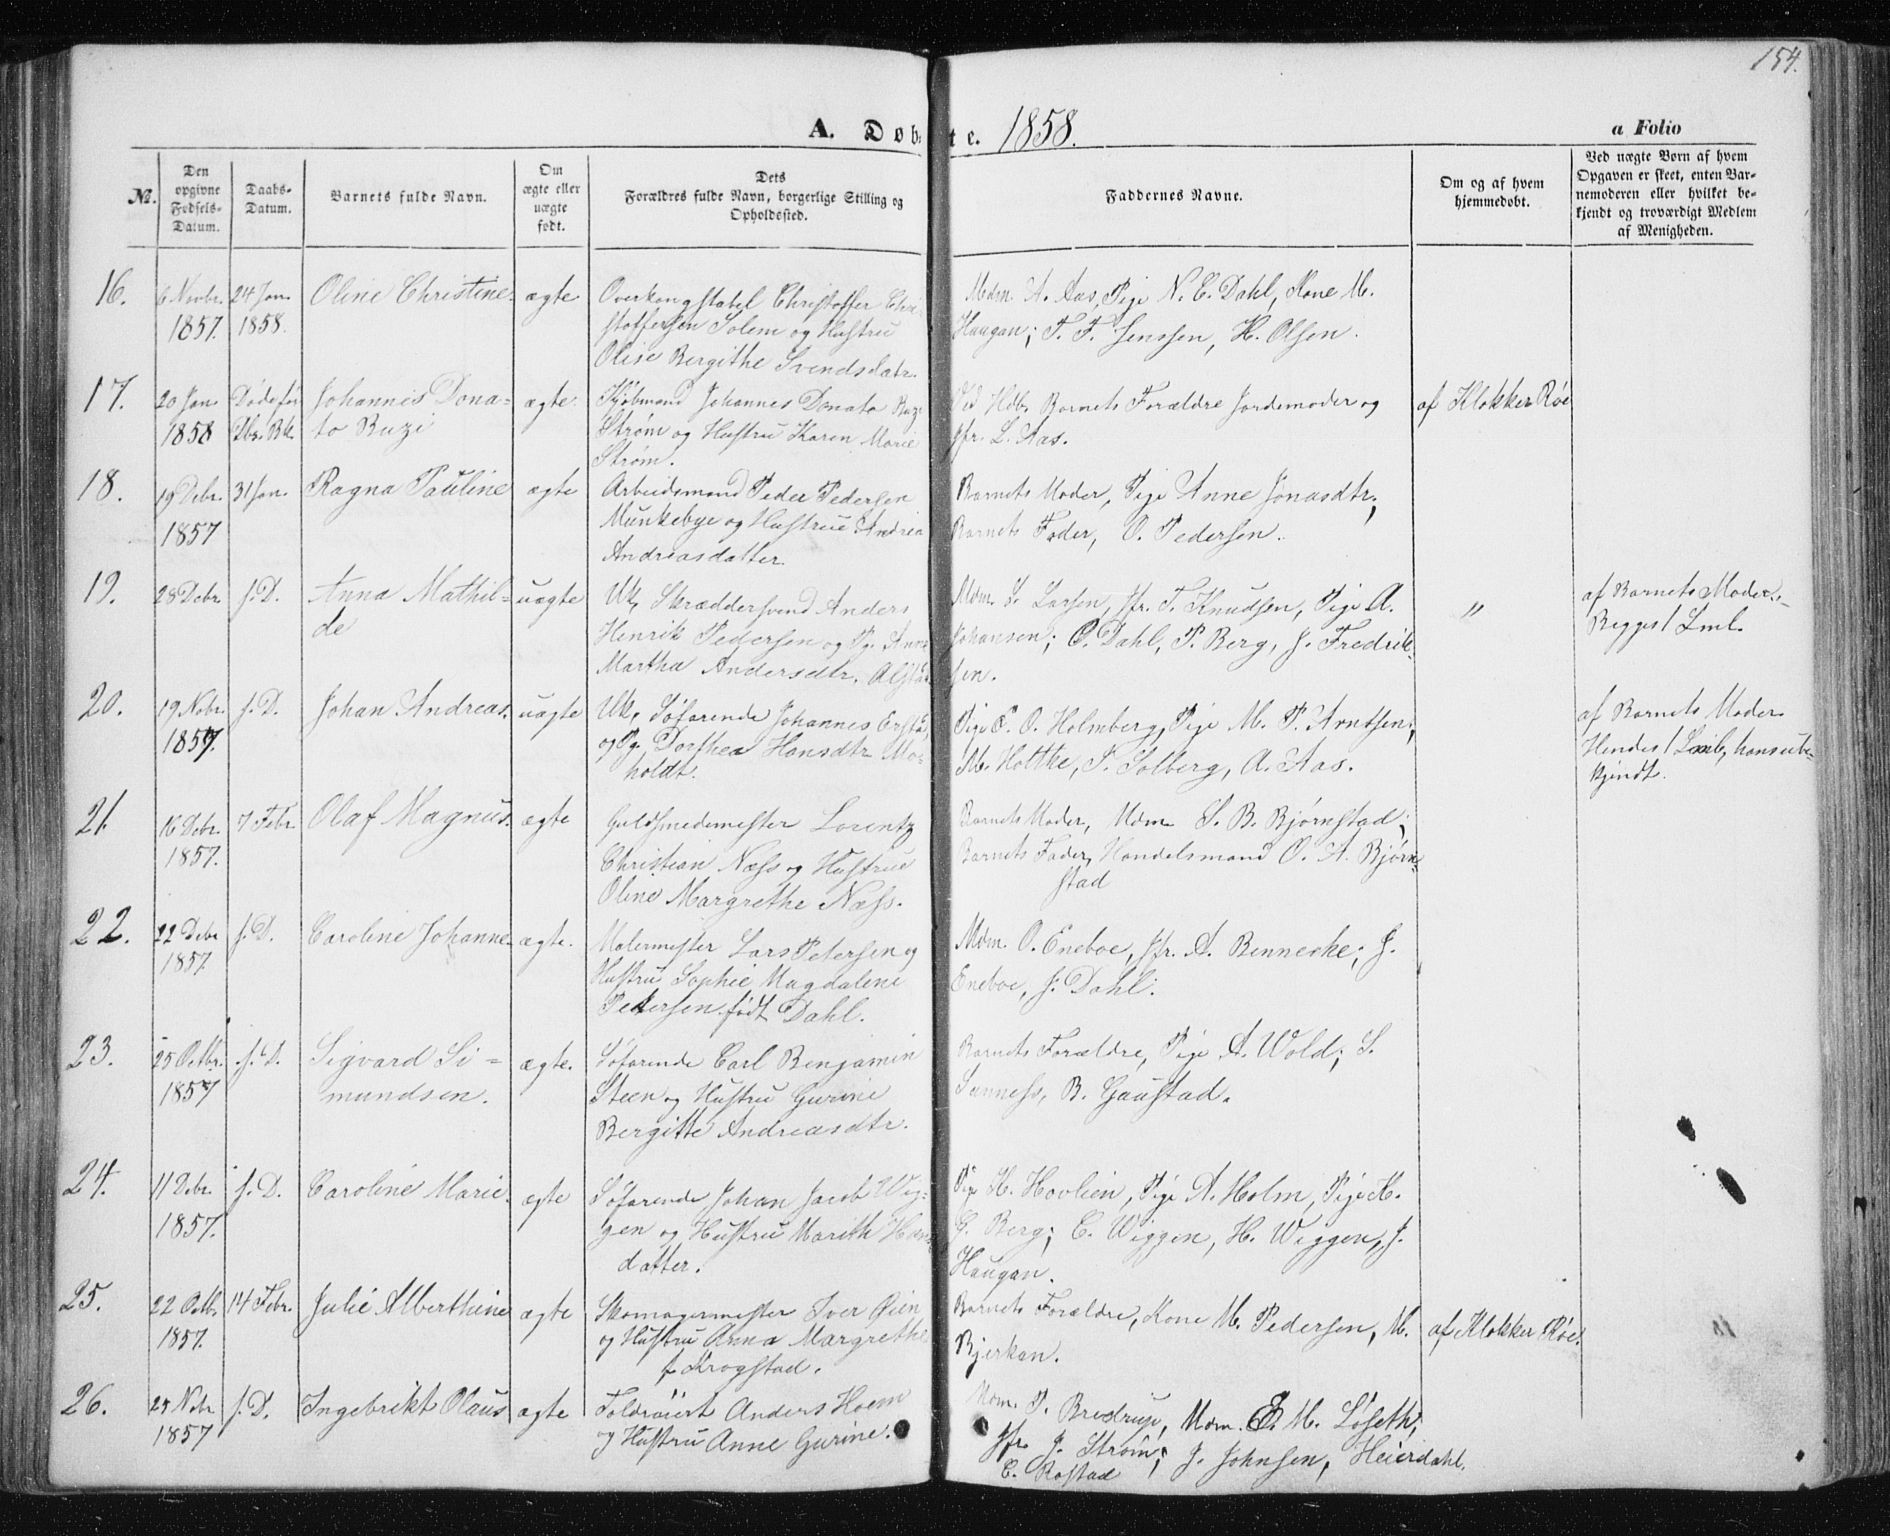 154.
A. Døbte. 1858. a Folio
No.
Den opgivne Fødsels-Datum.
Daabs-Datum.
Barnets fulde Navn.
Om ægte eller uægte født.
Dets Forældres fulde Navn, borgerlige Stilling og Opholdssted.
Faddernes Navne.
Om og af hvem hjemmedøbt.
Ved uægte Børn af hvem Opgaven er skeet, enten Barnemoderen eller hvilket bekjendt og troværdigt Medlem af Menigheden.
16. 6 Novbr. 24 Jan. Oline Christine. ægte Overkonstabel Christoffer Chri- Mdm. A. Aas, Pige N. E. Dahl, Kone M.
1857. 1858. stoffersen Solem og Hustru Haugan; T. F. Jenssen, H. Olsen.
Olise Bergithe Svendsdatr.
17. 20 Jan. Døde før Johannis Dona- ægte. Kjøbmand Johannes Donato Buzi Ved Hdb. Barnets Forældre Jordemoder og af Klokker Røe
1858 to Buzi Strøm og Hustru Karen Marie Jfr. L. Aas.
Strøm.
18. 19 Debr. 31 Jan. Ragna Pauline ægte Arbeidsmand Peder Pedersen Barnets Moder, Pige Anne Jonasdtr;
1857 Munkebye og Hustrue Andrea Barnets Fader, O. Pedersen.
Andreasdatter
19. 28 Debr. s. D. Anna Mathil- uægte Uk, Skræddersvend Anders Mdm. S. Larsen, Jfr. T. Knudsen, Pige A. " af Barnets Moder.
de Henrik Pedersen og Pg. Anne Johansen; O. Dahl, P. Berg, J. Fredrik- Begges 1 Lml.
Martha Andersdtr. Alstad sen.
20. 19 Nobr. s. D. Johan Andreas. uægte Uk, Søfarende Johannes Pige E. O. Holmberg, Pige M. P. Arntsen; af Barnets Moder
1857. og Pg. Dorthea Hansdtr Mo- M. Holtke, P. Solberg, A. Aas. Hendes 1 Lml, hans ube-
holdt. kjendt.
21. 16 Debr. 7 Febr. Olaf Magnus. ægte Guldsmedemester Lorentz Barnets Moder, Mdm S. B. Bjørnstad;
1857. Christian Næss og Hustrue Barnets Fader, Handelsmand O. A. Bjørn-
Oline Margrethe Næss. stad
22. 22 Debr s. D. Caroline Johanne ægte. Malermester Lars Petersen og Mdm. O. Eneboe, Jfr. A. Bennecke; J.
1857. Hustru Sophie Magdalene Eneboe, J. Dahl.
Petersen født Dahl.
23. 25 Octbr. s. D. Sigvard Si- ægte. Søfarende Carl Benjamin Barnets Forældre, Pige A. Wold; S.
1857 mundsen. Steen og Hustru Gurine Sanness, B. Gaustad.
Bergitte Andreasdtr.
24. 11 Debr. s. D. Caroline Marie. ægte Søfarende Johan Jacob Wig- Pige H. Hovlien, Pige A. Holm, Pige A.
1857. gen og Hustru Marith Han- G. Berg; C. Wiggen, H. Wiggen, J.
datter. Haugan.
25. 22 Octb. 14 Febr. Julie Alberthine ægte Skomagermester Iver Øien Barnets Forældre, Kone M. Pedersen, M. af Klokker Røe.
1857. og Hustru Anna Margrethe Bjerkan.
f Krogstad.
26. 25 Nobr s. D. Ingebrikt Olaus ægte Toldrøiert Anders Hoem Mdm. P. Bredrup, Mdm. E. M. Løseth;
1857 og Hustru Anne Gurine. Jfr. J. Strøm; J. Johnsen, Heierdahl.
C. Rostad